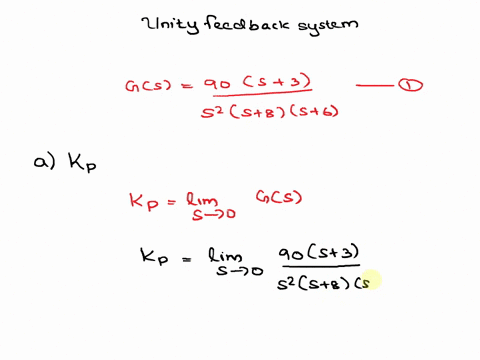 Unity feedback system
G(s) = 90 (s+3) / s²(s+8)(s+6) —— ①
a) Kp
Kp = lim s→0 G(s)
Kp = lim s→0 90(s+3) / s²(s+8)(s